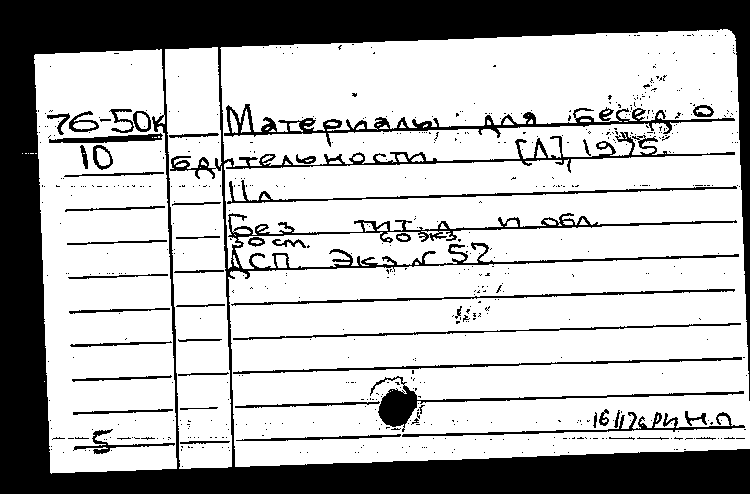 76-50к Материалы для бесед о
10 бдительности. [Л], 1975.
11 л
Без тит. л и обл.
30 ст. 60 экз.
ДСП. Экз. № 52
Н.П
5